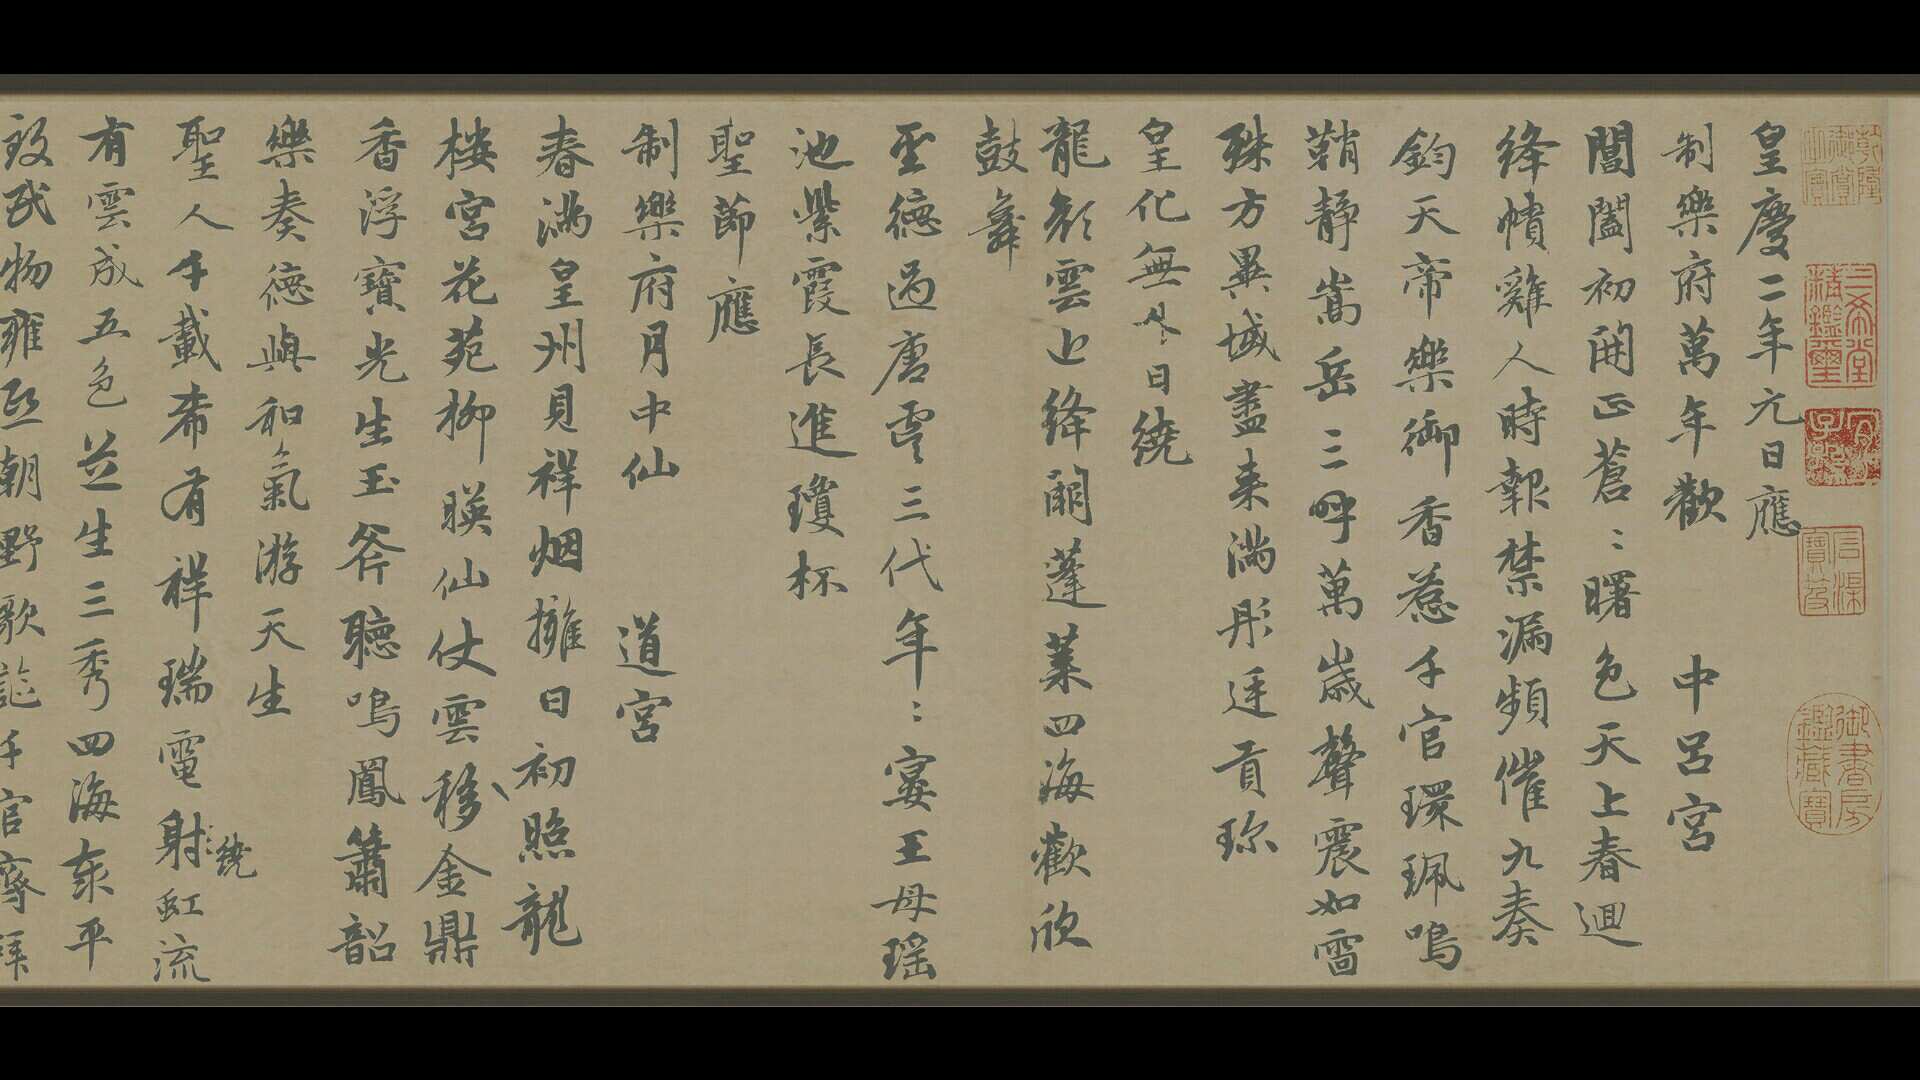 乾隆御覽之寶
三希堂精鑑璽
宜子孫
石渠寶笈
御書房鑑藏寶
皇慶二年元日應
制樂府萬年歡 中呂宮
閶闔初開正蒼〻曙色天上春迴
絳幘雞人時報禁漏頻催九奏
鈞天帝樂御香惹千官環珮鳴
鞘靜嵩岳三呼萬歲聲震如雷
殊方異域盡来滿彤廷貢珎
皇化無外日繞
龍顏雲上絳闕蓬莱四海歡欣
鼓舞
聖德過唐虞三代年〻宴王母瑶
池紫霞長進瓊杯
聖節應
制樂府月中仙 道宮
春滿皇州見祥烟擁日初照龍
樓宮花苑柳暎仙仗雲移金鼎
香浮寶光生玉斧聽鳴鳳簫韶
樂奏德與和氣游天生
聖人千載希有祥瑞電射繞虹流
有雲成五色芝生三秀四海泰平
致民物雍熙朝野歌謠千官齊拜